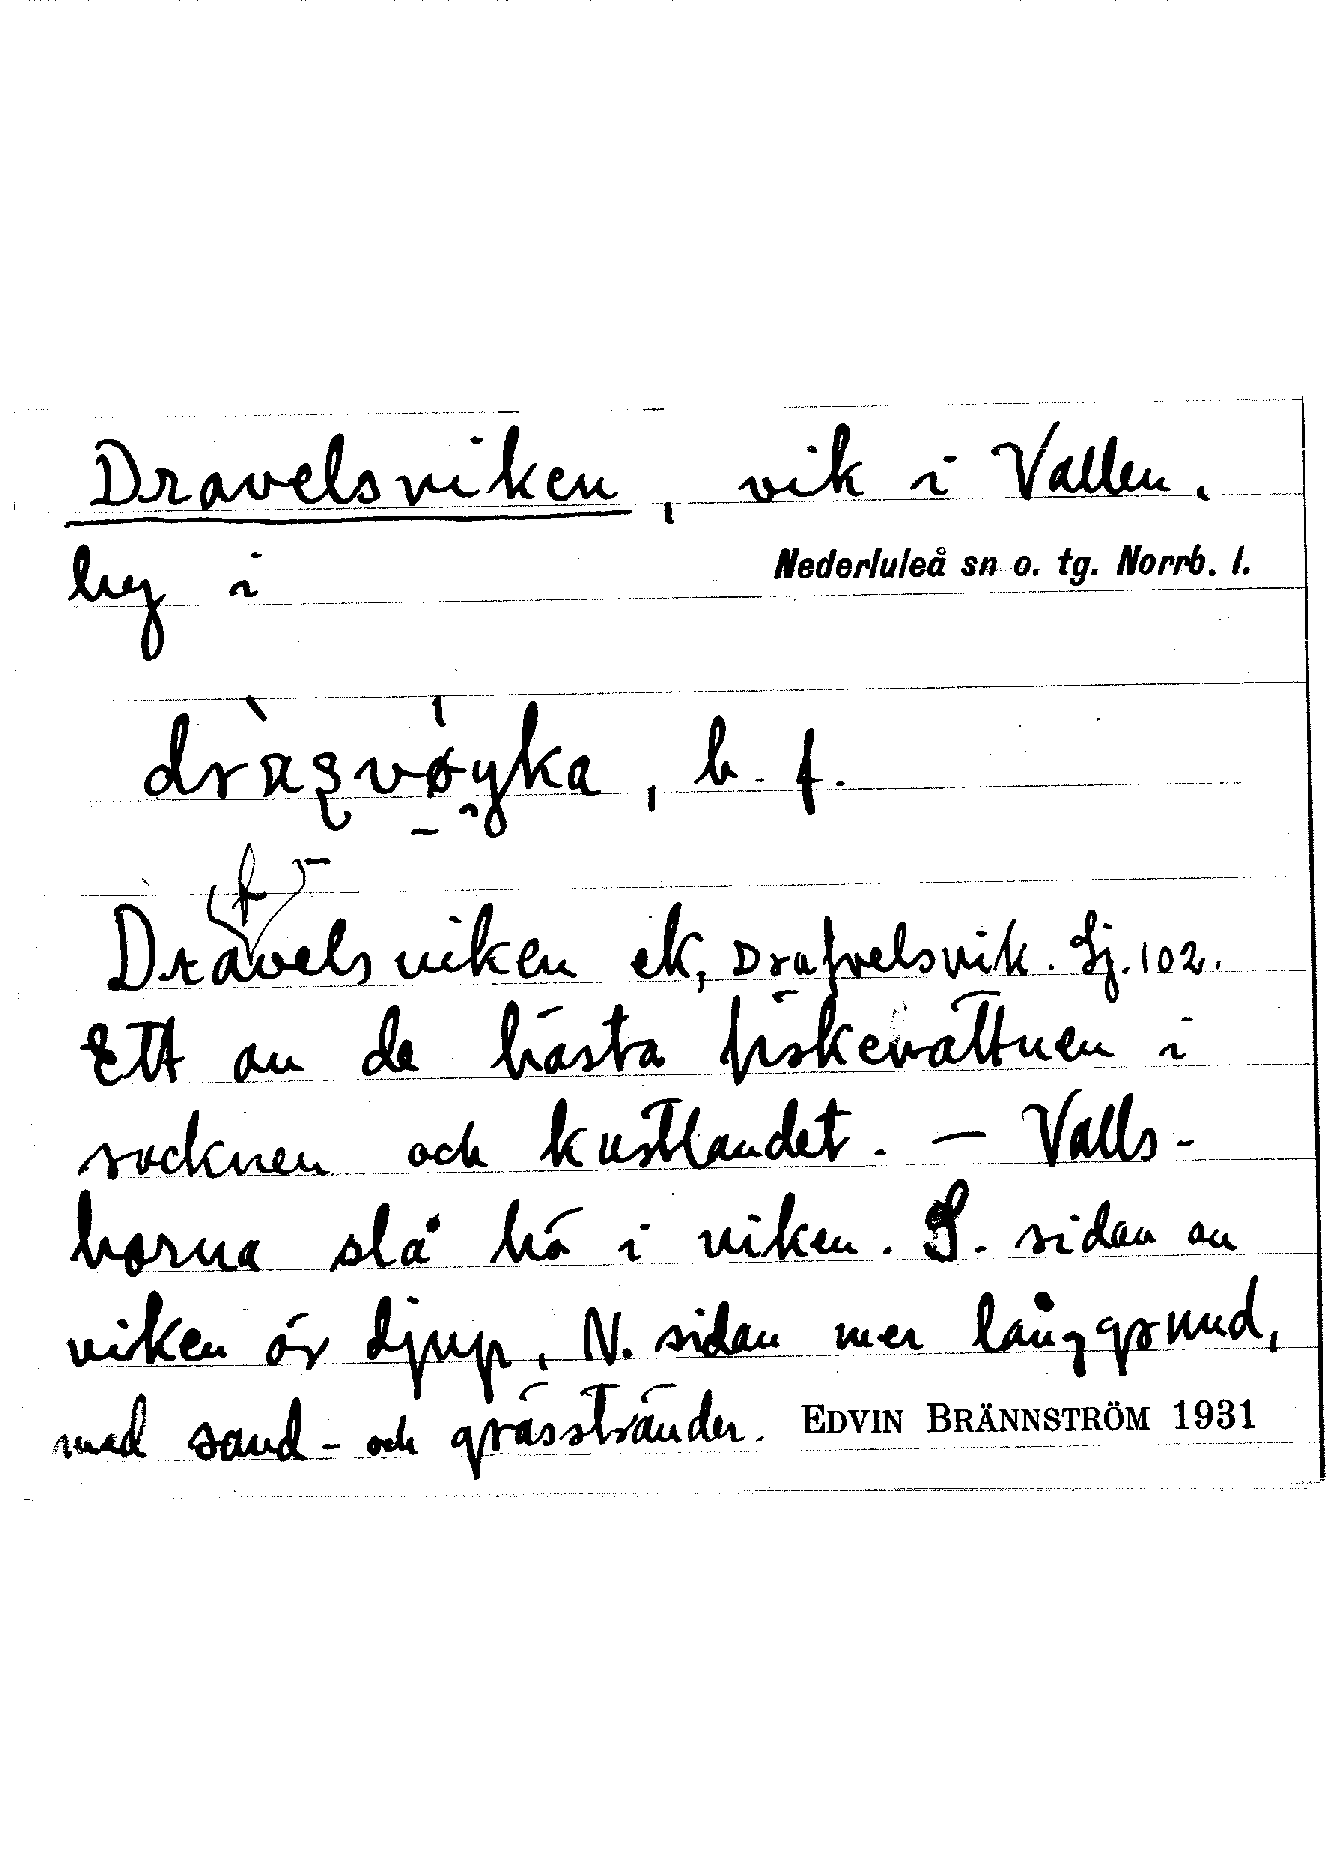 Dravelsviken, vik i Vallen,
by i Nederluleå sn o. tg. Norrb. l.
b. f.
f
Dravelsviken ek, Drafvelsvik. Sj. 102.
Ett av de bästa fiskevattnen i
socknen och kustlandet. — Valls-
borna slå hö i viken. S. sidan av
viken är djup, N. sidan mer långgrund,
med sand- och grässtränder. EDVIN BRÄNNSTRÖM 1931